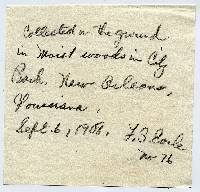 Collected on the ground
in moist woods in City
Park, New Orleans,
Louisiana.
Sept. 6, 1908. F. S. Earle
no 76